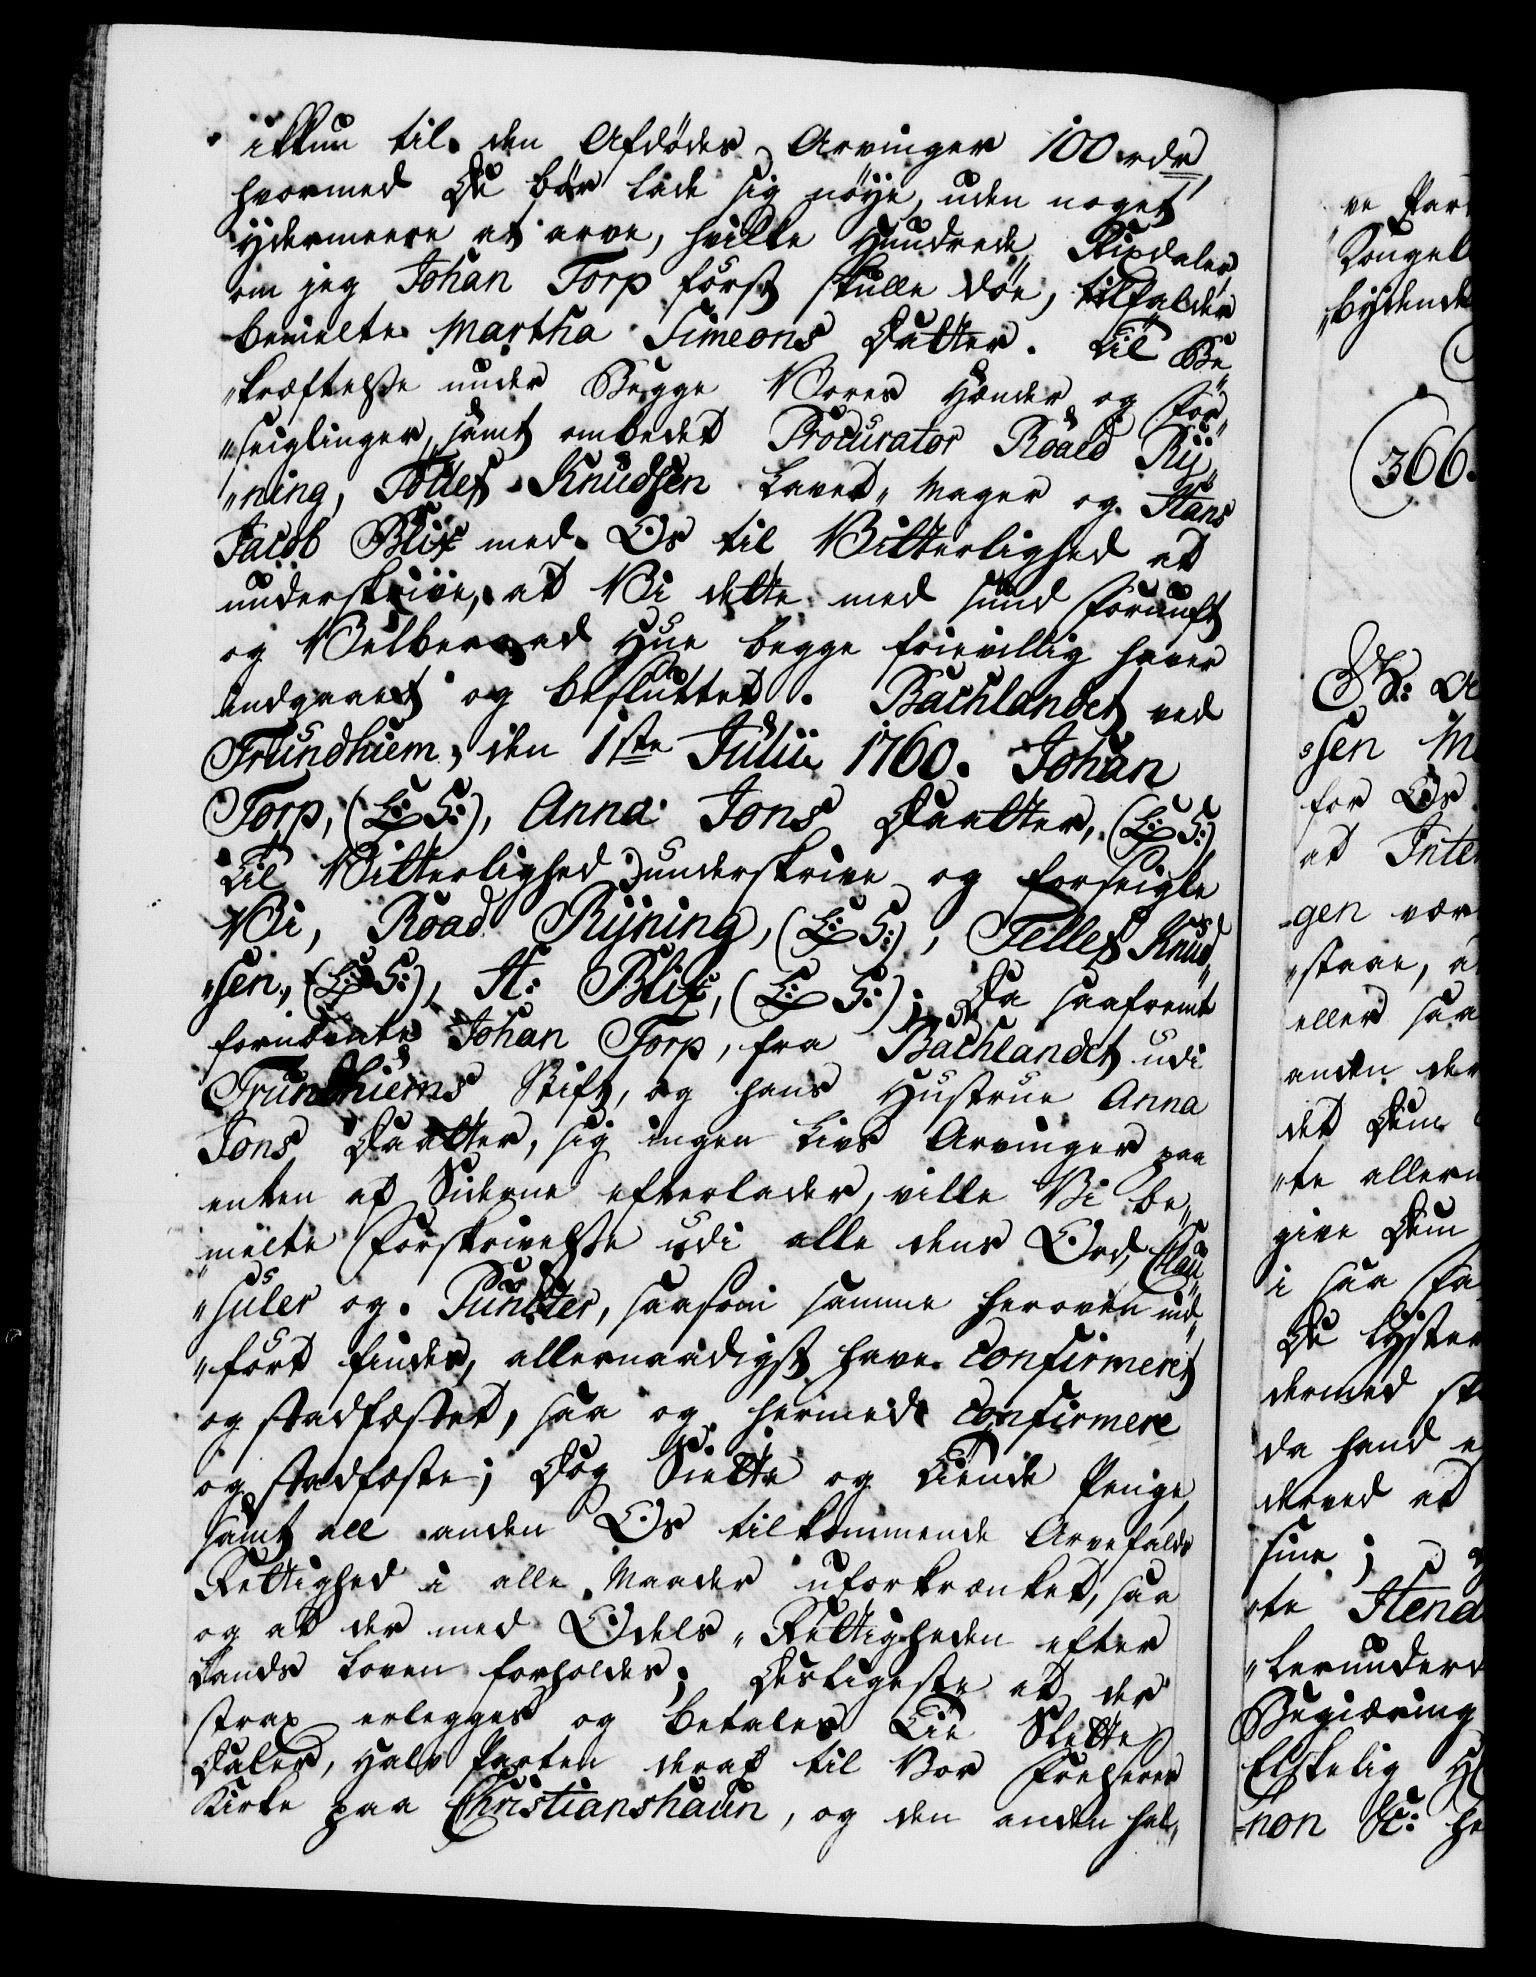 ikkun til den Afdödes Arvinger 100 rdr
hvormed De bör lade sig nöye, uden noget
ydermeere at arve, hvilke Hundrede Rixdaler,
om jeg Johan Torp först skulle döe, tilfalder
bemelte Martha Simeons Datter. Til Be„
„kræftelse under Begge Vores Hænder og For„
„seiglinger, samt ombedet Procurator Roald Rÿ„
„ning, Tolles Knudsen Laved„Mager og Hans
Jacob Blix med Os til Vitterlighed at
underskrive, at Vi dette med sund Fornuft
og Velberaad Hue begge frievillig haver
indgaaet og besluttet. Bachlandet ved
Trundhiem, den 1ste Julii 1760. Johan
Torp, (L: S:), Anna Jons Daatter, (L: S:)
Til Vitterlighed underskrive og forseigle
Vi, Road Rÿning, (L: S:), Telles Knud„
„sen, (L: S:), H: Blix, (L: S:); Da saafremt
fornevnte Johan Torp, fra Bachlandet udi
Trundhiems Stift, og hans Hustrue Anna
Jons Daatter, sig ingen Livs Arvinger paa
enten af Siderne efterlader, ville Vi be„
„melte Forskrivelse udi alle dens Ord, Clau„
„suler og Puncter, saasom samme heroven ind„
„fört findes, allernaadigst have confirmeret
og stadfæstet, saa og hermed confirmere
og stadfæste; Dog Siette og Tiende Penge,
samt all anden Os tilkommende Arvefalds
Rettighed i alle Maader uforkrænket, saa
og at der med Odels„Rettigheden efter
Lands Loven forholdes; Desligeste at der
strax erlegges og betales Tie Slette
Daler, Halv Parten deraf til Vor Frelseres
Kirke paa Christianshaun, og den anden hal„
ve Par
Kongel
„bydende
(366.
Gr: A
„sen M
for Os
at Inte
„gen vær
„staae, a
eller saa
anden der
det Dem
„te allern
give Dem
i saa Fa
De lyste
dermed st
da hand e
derved at
sine;
„te Hend
„lerunderd
Begiæring
Elskelig H
„non &c: he